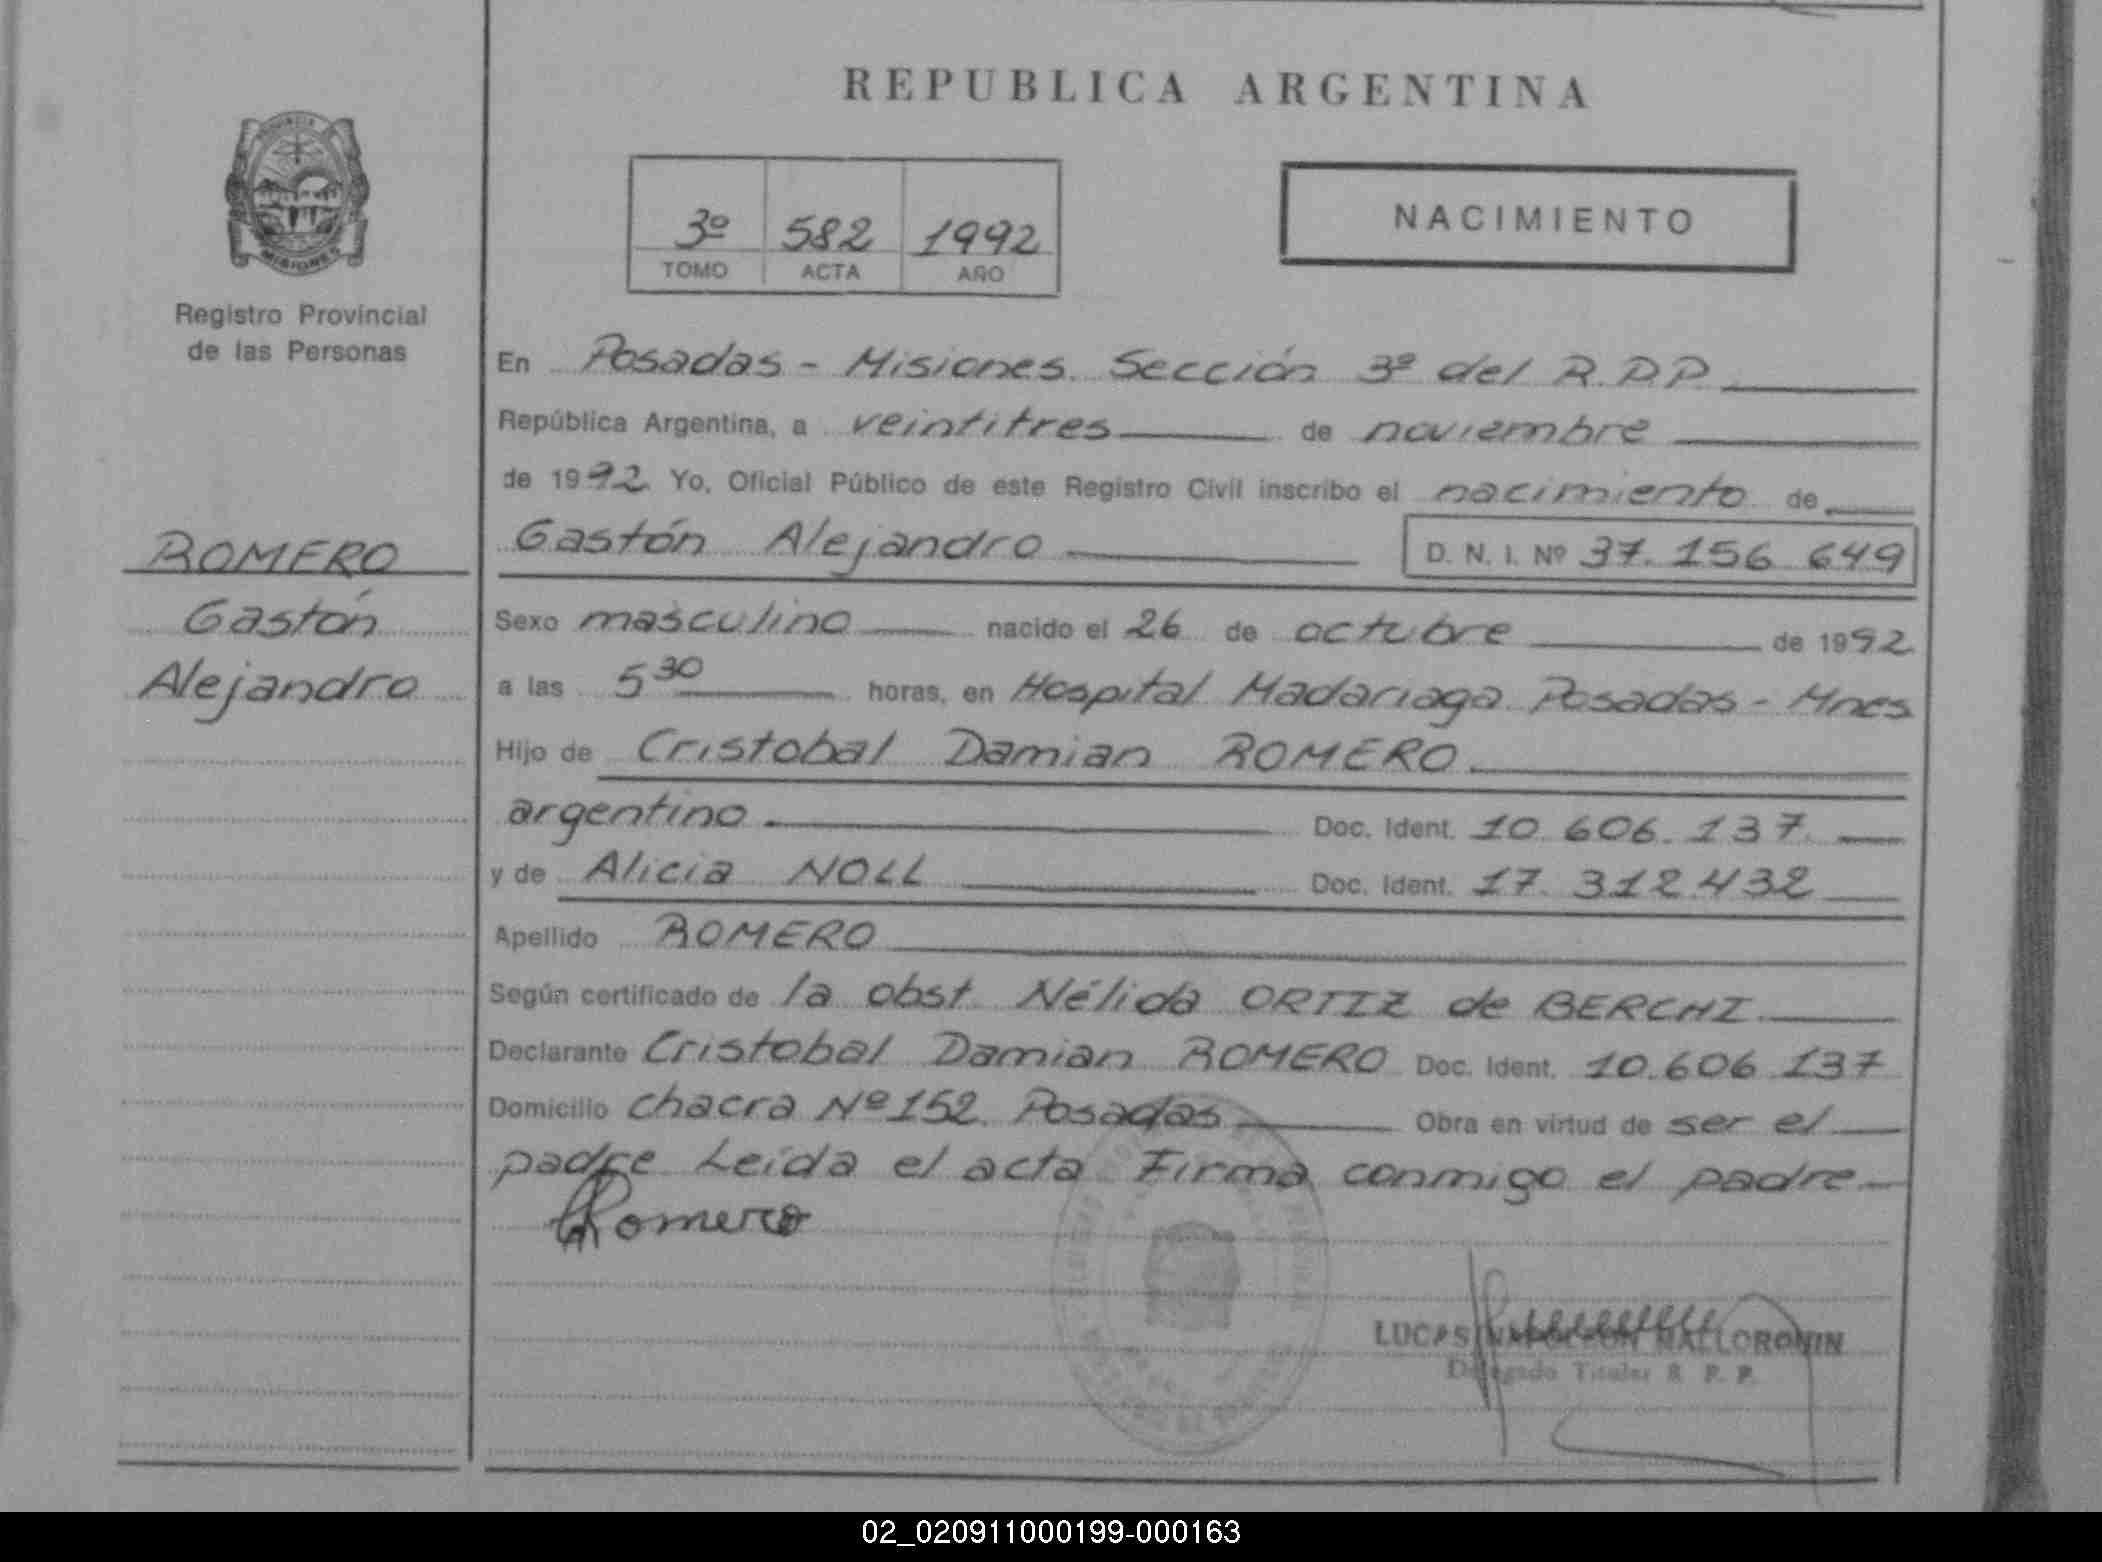 REPUBLICA ARGENTINA
3º 582 1992
TOMO ACTA AÑO
NACIMIENTO
PROVINCIA
MISIONES
Registro Provincial
de las Personas
ROMERO
Gastón
Alejandro
En Posadas - Misiones. Sección 3ª del R.P.P.
República Argentina, a veintitres de noviembre
de 1992 Yo, Oficial Público de este Registro Civil inscribo el nacimiento de
Gastón Alejandro D. N. I. Nº 37.156.649
Sexo masculino nacido el 26 de octubre de 1992
a las 5 30 horas, en Hospital Madariaga. Posadas - Mnes
Hijo de Cristobal Damian ROMERO
argentino Doc. Ident. 10.606.137.
y de Alicia NOLL Doc. Ident. 17.312.432
Apellido ROMERO
Según certificado de la obst. Nélida ORTIZ de BERCHI.
Declarante Cristobal Damian ROMERO Doc. Ident. 10.606.137
Domicilio chacra Nº 152. Posadas Obra en virtud de ser el
padre Leída el acta Firma conmigo el padre
Romero
LUCAS NAPOLEON MALLORQUIN
Delegado Titular R. P. P.
02_020911000199-000163